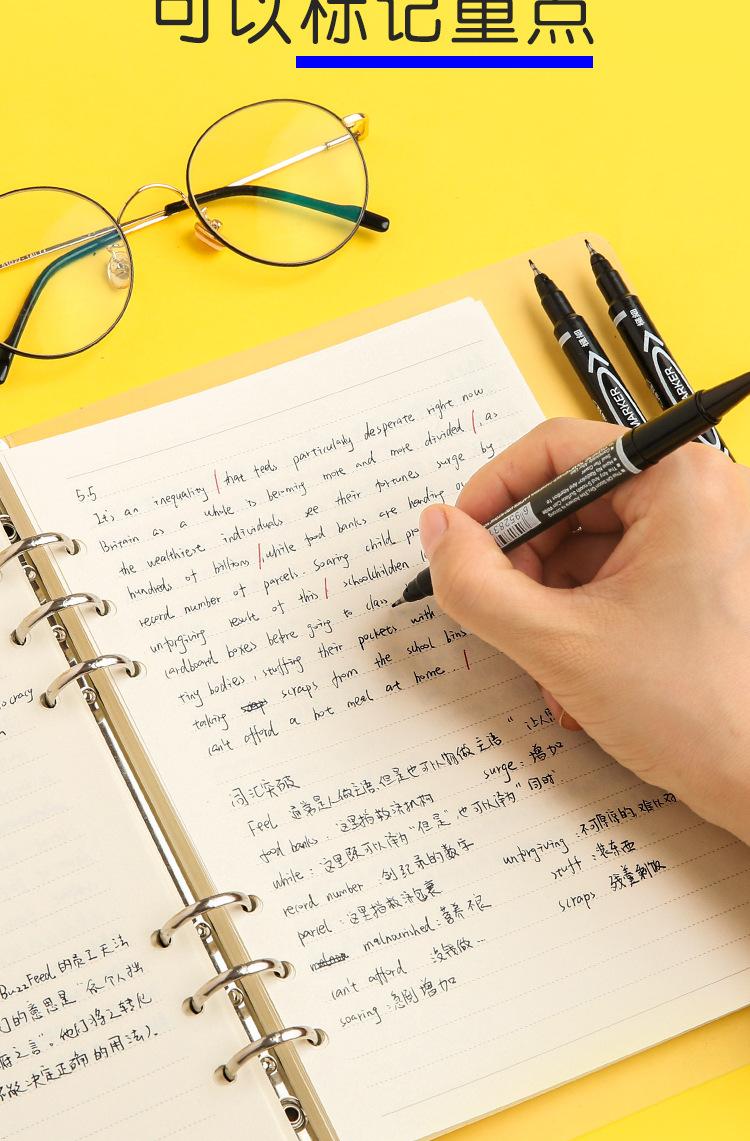 可以标记重点
5.5
It's an inequality that feels particularly desperate right now
Britain as a whole is becoming more and more divided, as
the wealthiest individuals see their fortunes surge by
hundreds of billions, while food banks are handing
record number of parcels. Soaring child
unforgiving result of this schoolchildren
cardboard boxes before going to class
tiny bodies, stuffing their pockets with
taking scraps from the school bins
can't afford a hot meal at home.
词汇突破
Feel 通常是人做主语，但是也可以物做主语"
food banks: 这里指救济机构
surge: 增加
while: 这里既可以译为"但是"，也可以译为"同时"
record number 创纪录的数字
unforgiving
parcel: 这里指救济包裹
stuff: 装东西
malnourished: 营养不良
scraps 残羹剩饭
can't afford 没钱做…
soaring: 急剧增加
ocracy
BuzzFeed 的员工无法
们的意思是"
"。他们将之转化
决定正确的用法)。
MARKER
MARKER